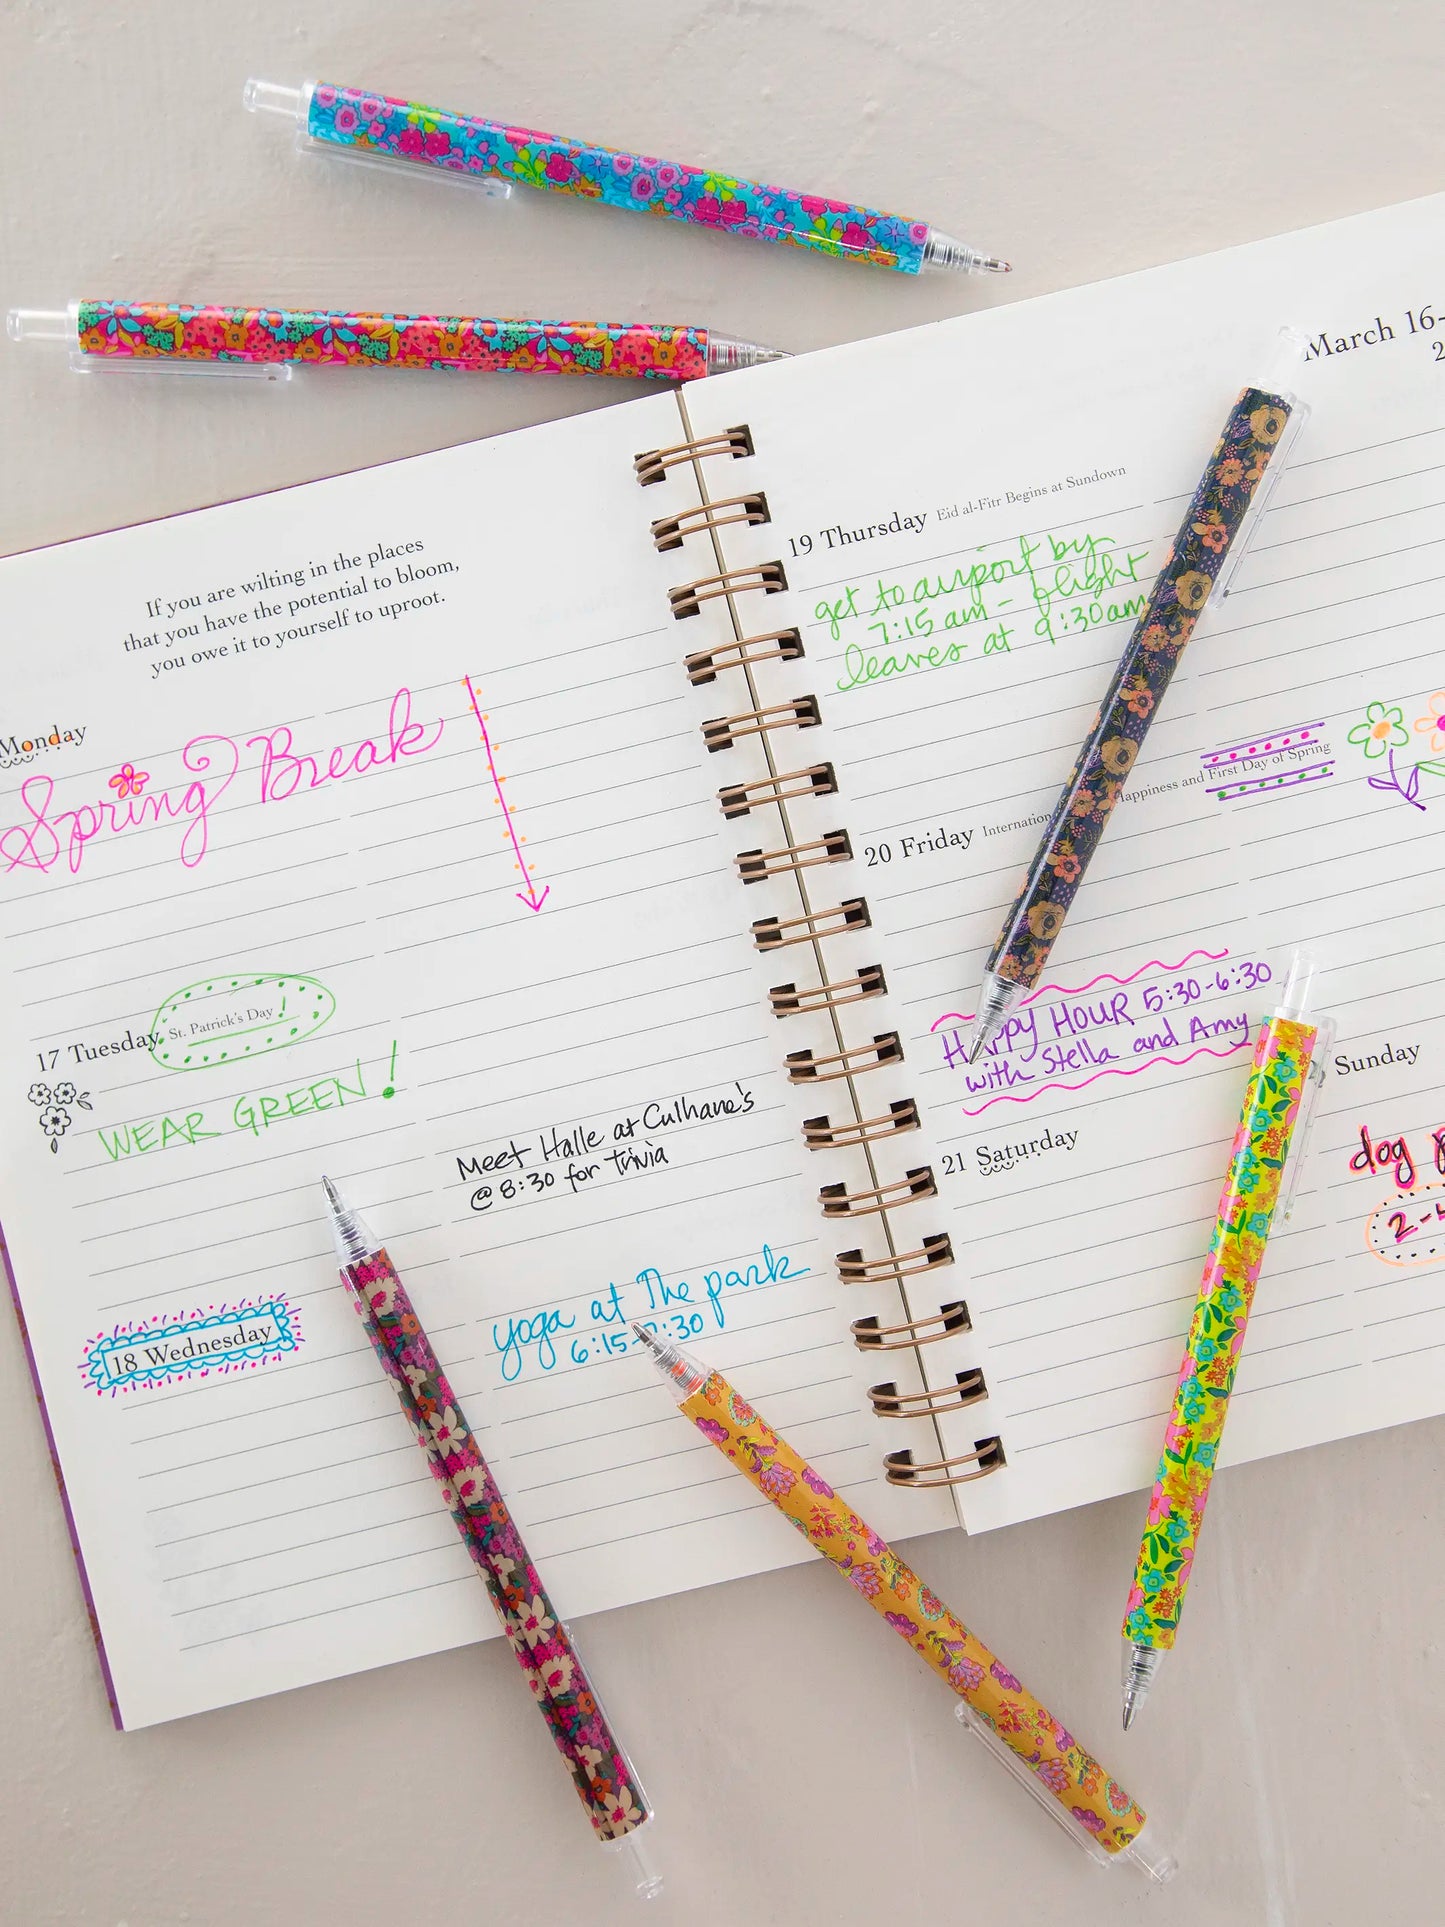 If you are wilting in the places
that you have the potential to bloom,
you owe it to yourself to uproot.
Monday
Spring Break
17 Tuesday St. Patrick's Day!
WEAR GREEN!
Meet Halle at Culhane's
@ 8:30 for trivia
18 Wednesday
yoga at The park
6:15-7:30
March 16-
2
19 Thursday Eid al-Fitr Begins at Sundown
get to airport by
7:15 am - flight
leaves at 9:30am
20 Friday Internation
Happiness and First Day of Spring
HAPPY HOUR 5:30-6:30
with Stella and Amy
21 Saturday
Sunday
dog
2-4